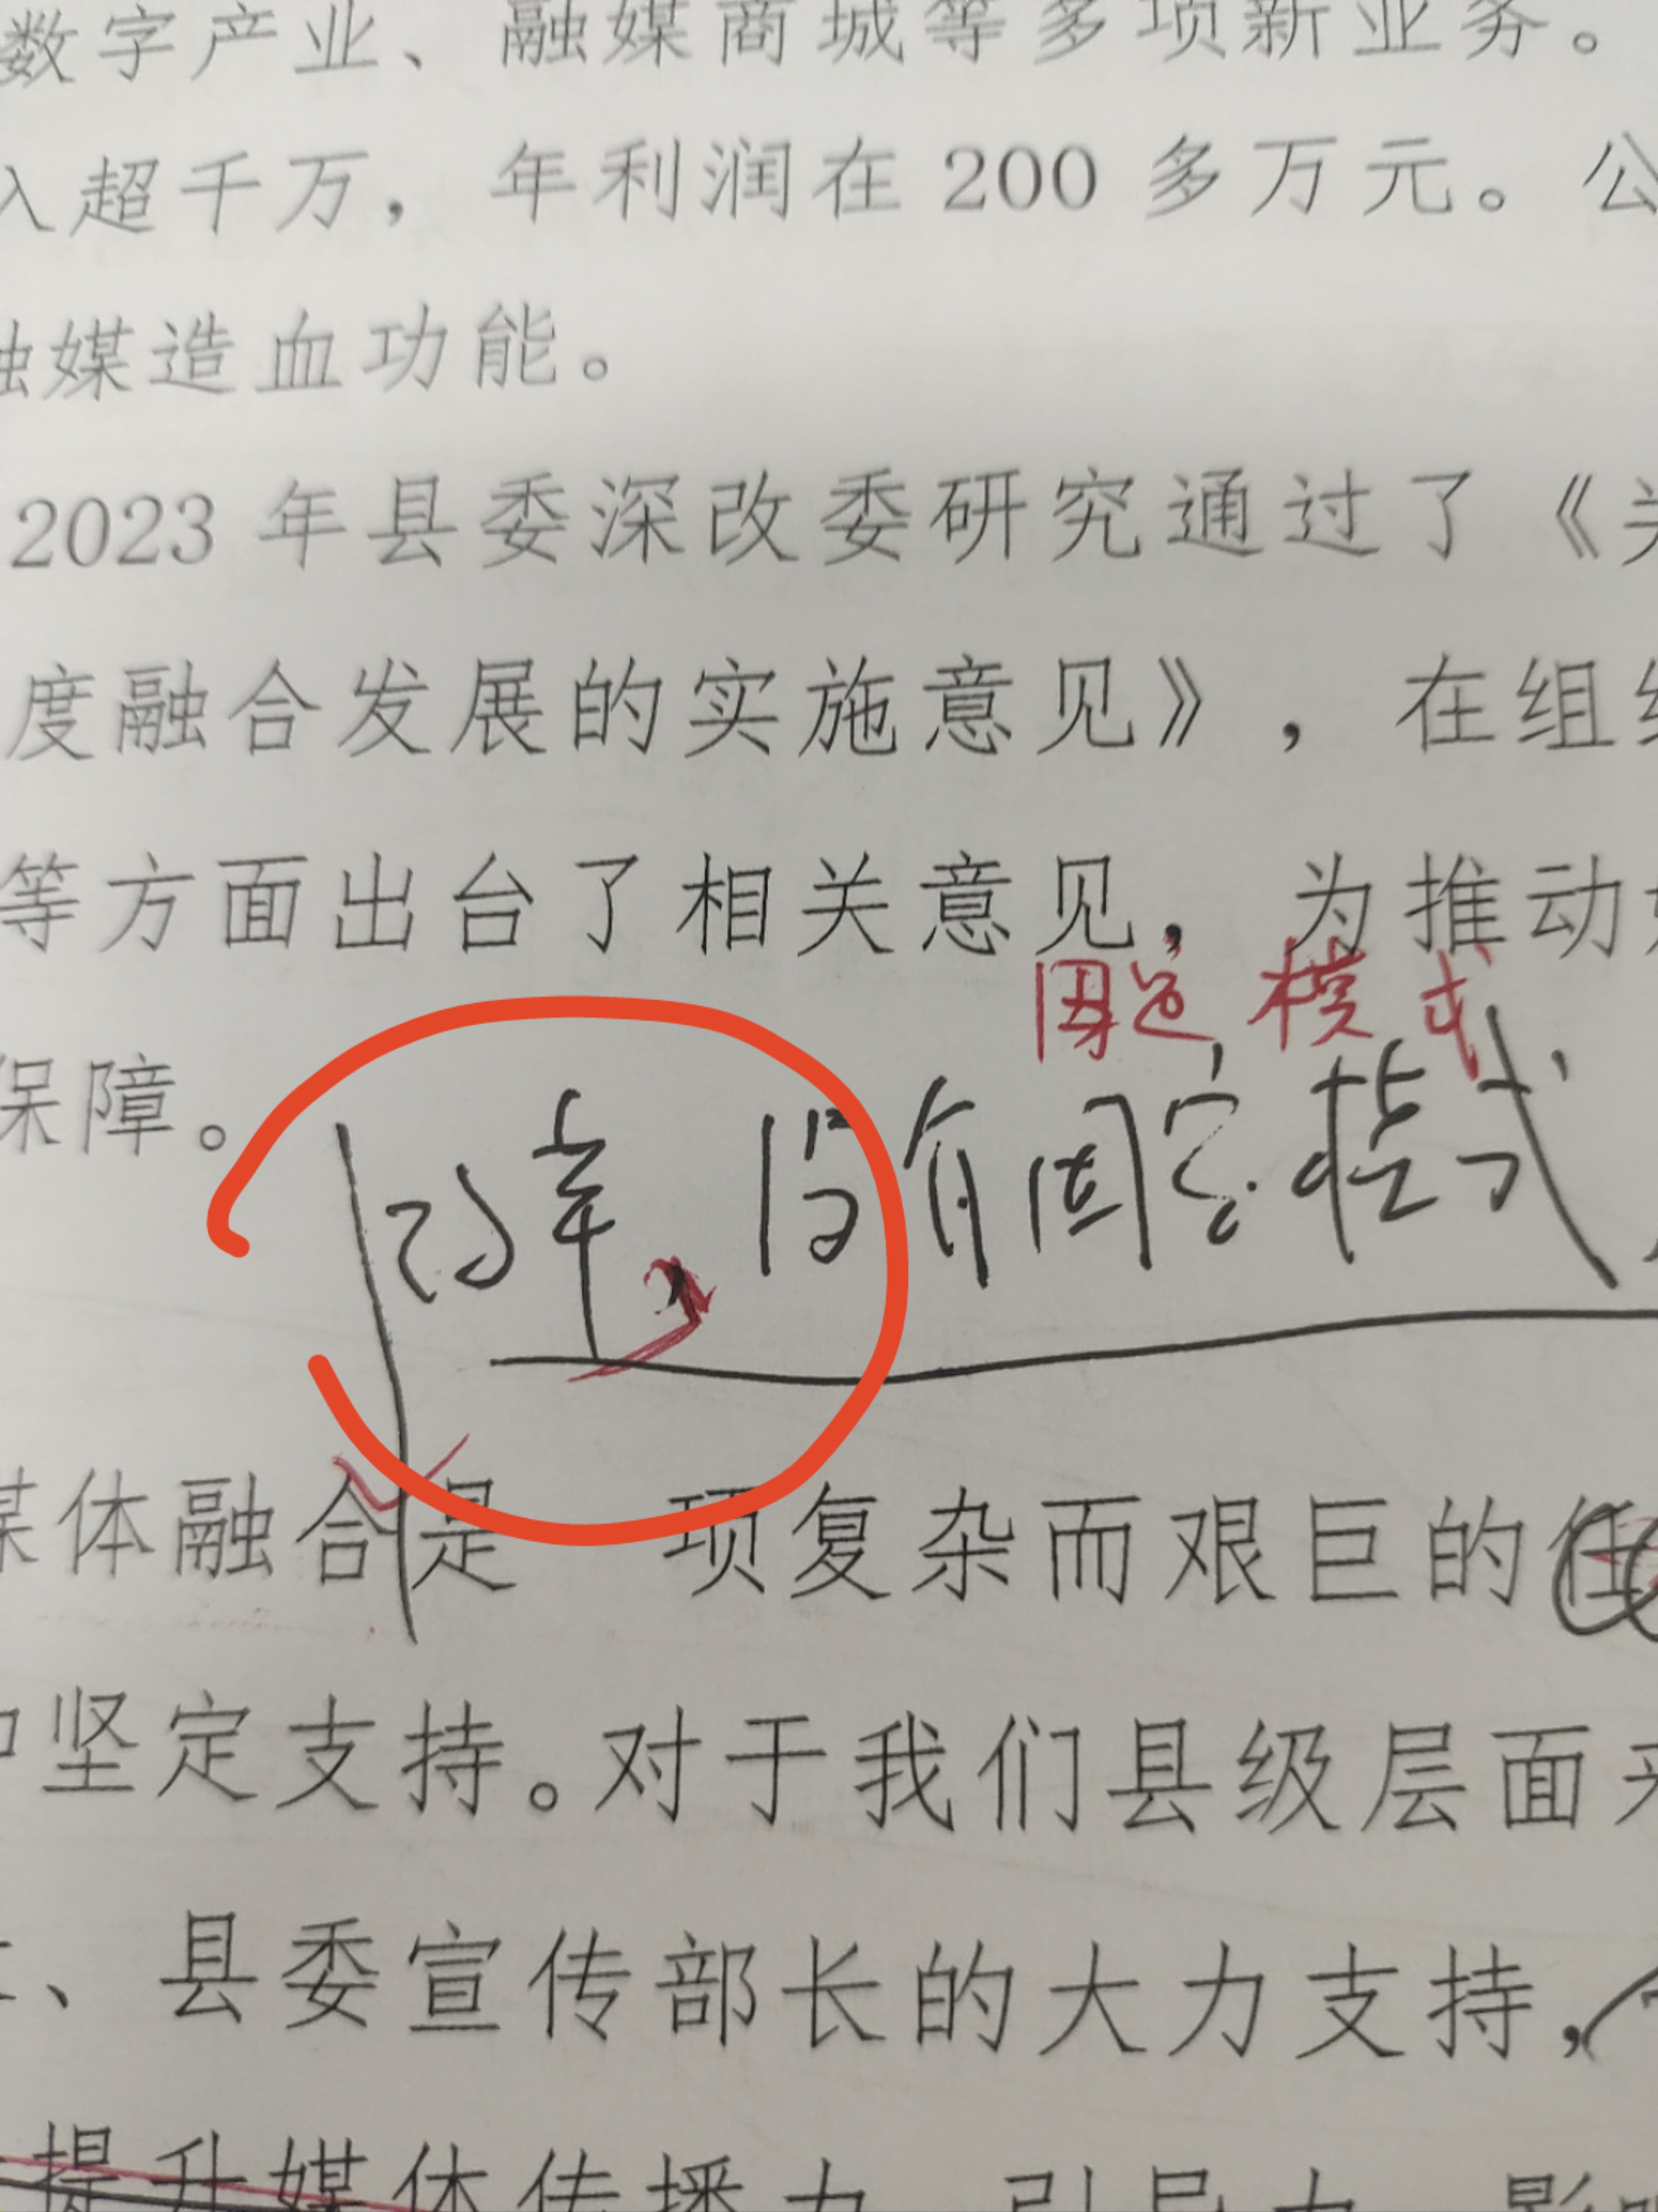 数字产业、融媒商城等多项新业务。
入超千万，年利润在 200 多万元。公
融媒造血功能。
2023 年县委深改委研究通过了《关
度融合发展的实施意见》，在组织
等方面出台了相关意见，为推动
固定模式
保障。
没有固定模式
媒体融合是 项复杂而艰巨的任
坚定支持。对于我们县级层面来
、县委宣传部长的大力支持，
提升媒体传播力、引导力、影响